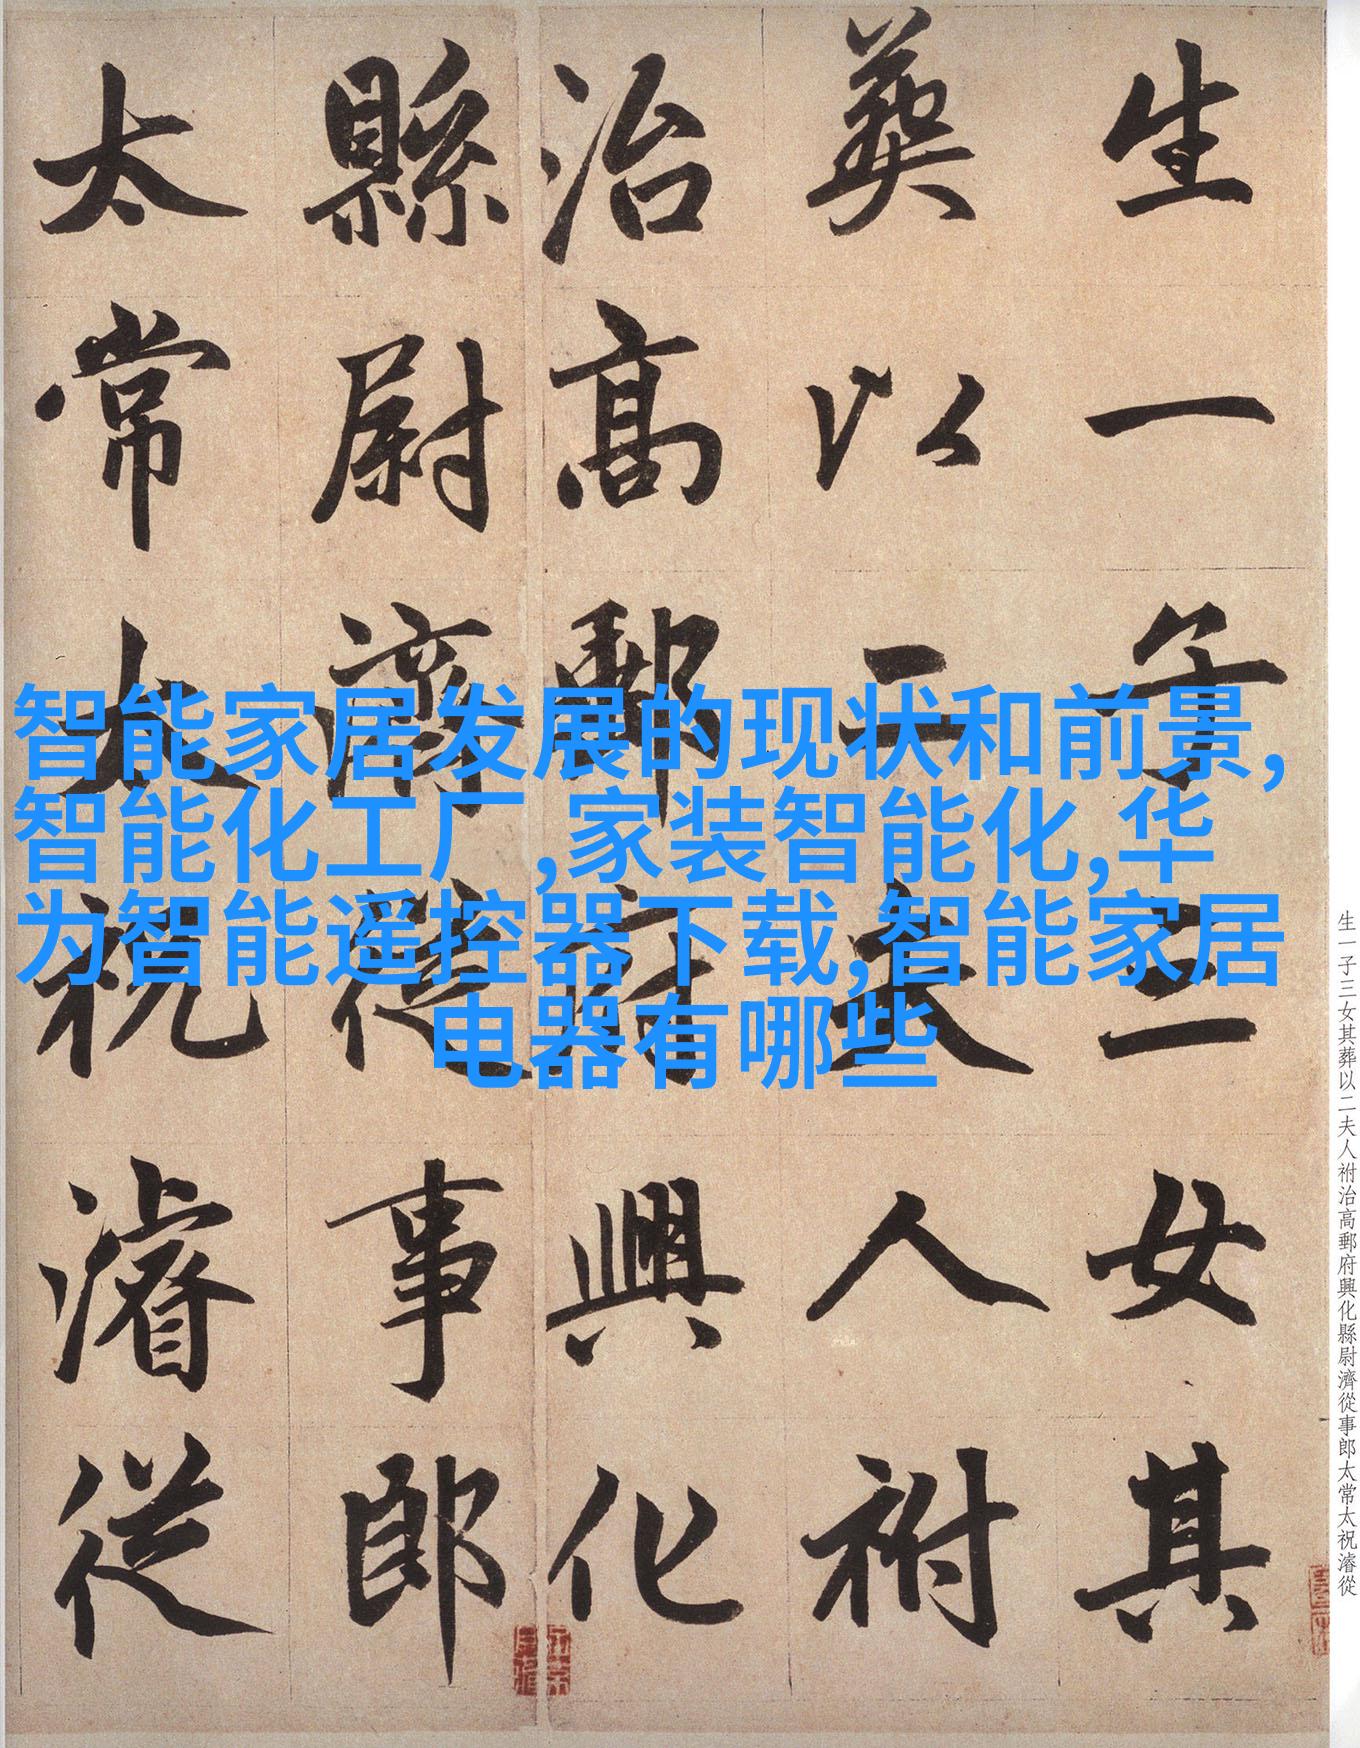 生一子三女其
葬以二夫人祔
治高郵府興化
縣尉濟從事郎
太常太祝濬從
智能家居发展的现状和前景,
智能化工厂,家装智能化,华
为智能遥控器下载,智能家居
电器有哪些
生一子三女其葬以二夫人祔治高郵府興化縣尉濟從事郎太常太祝濬從